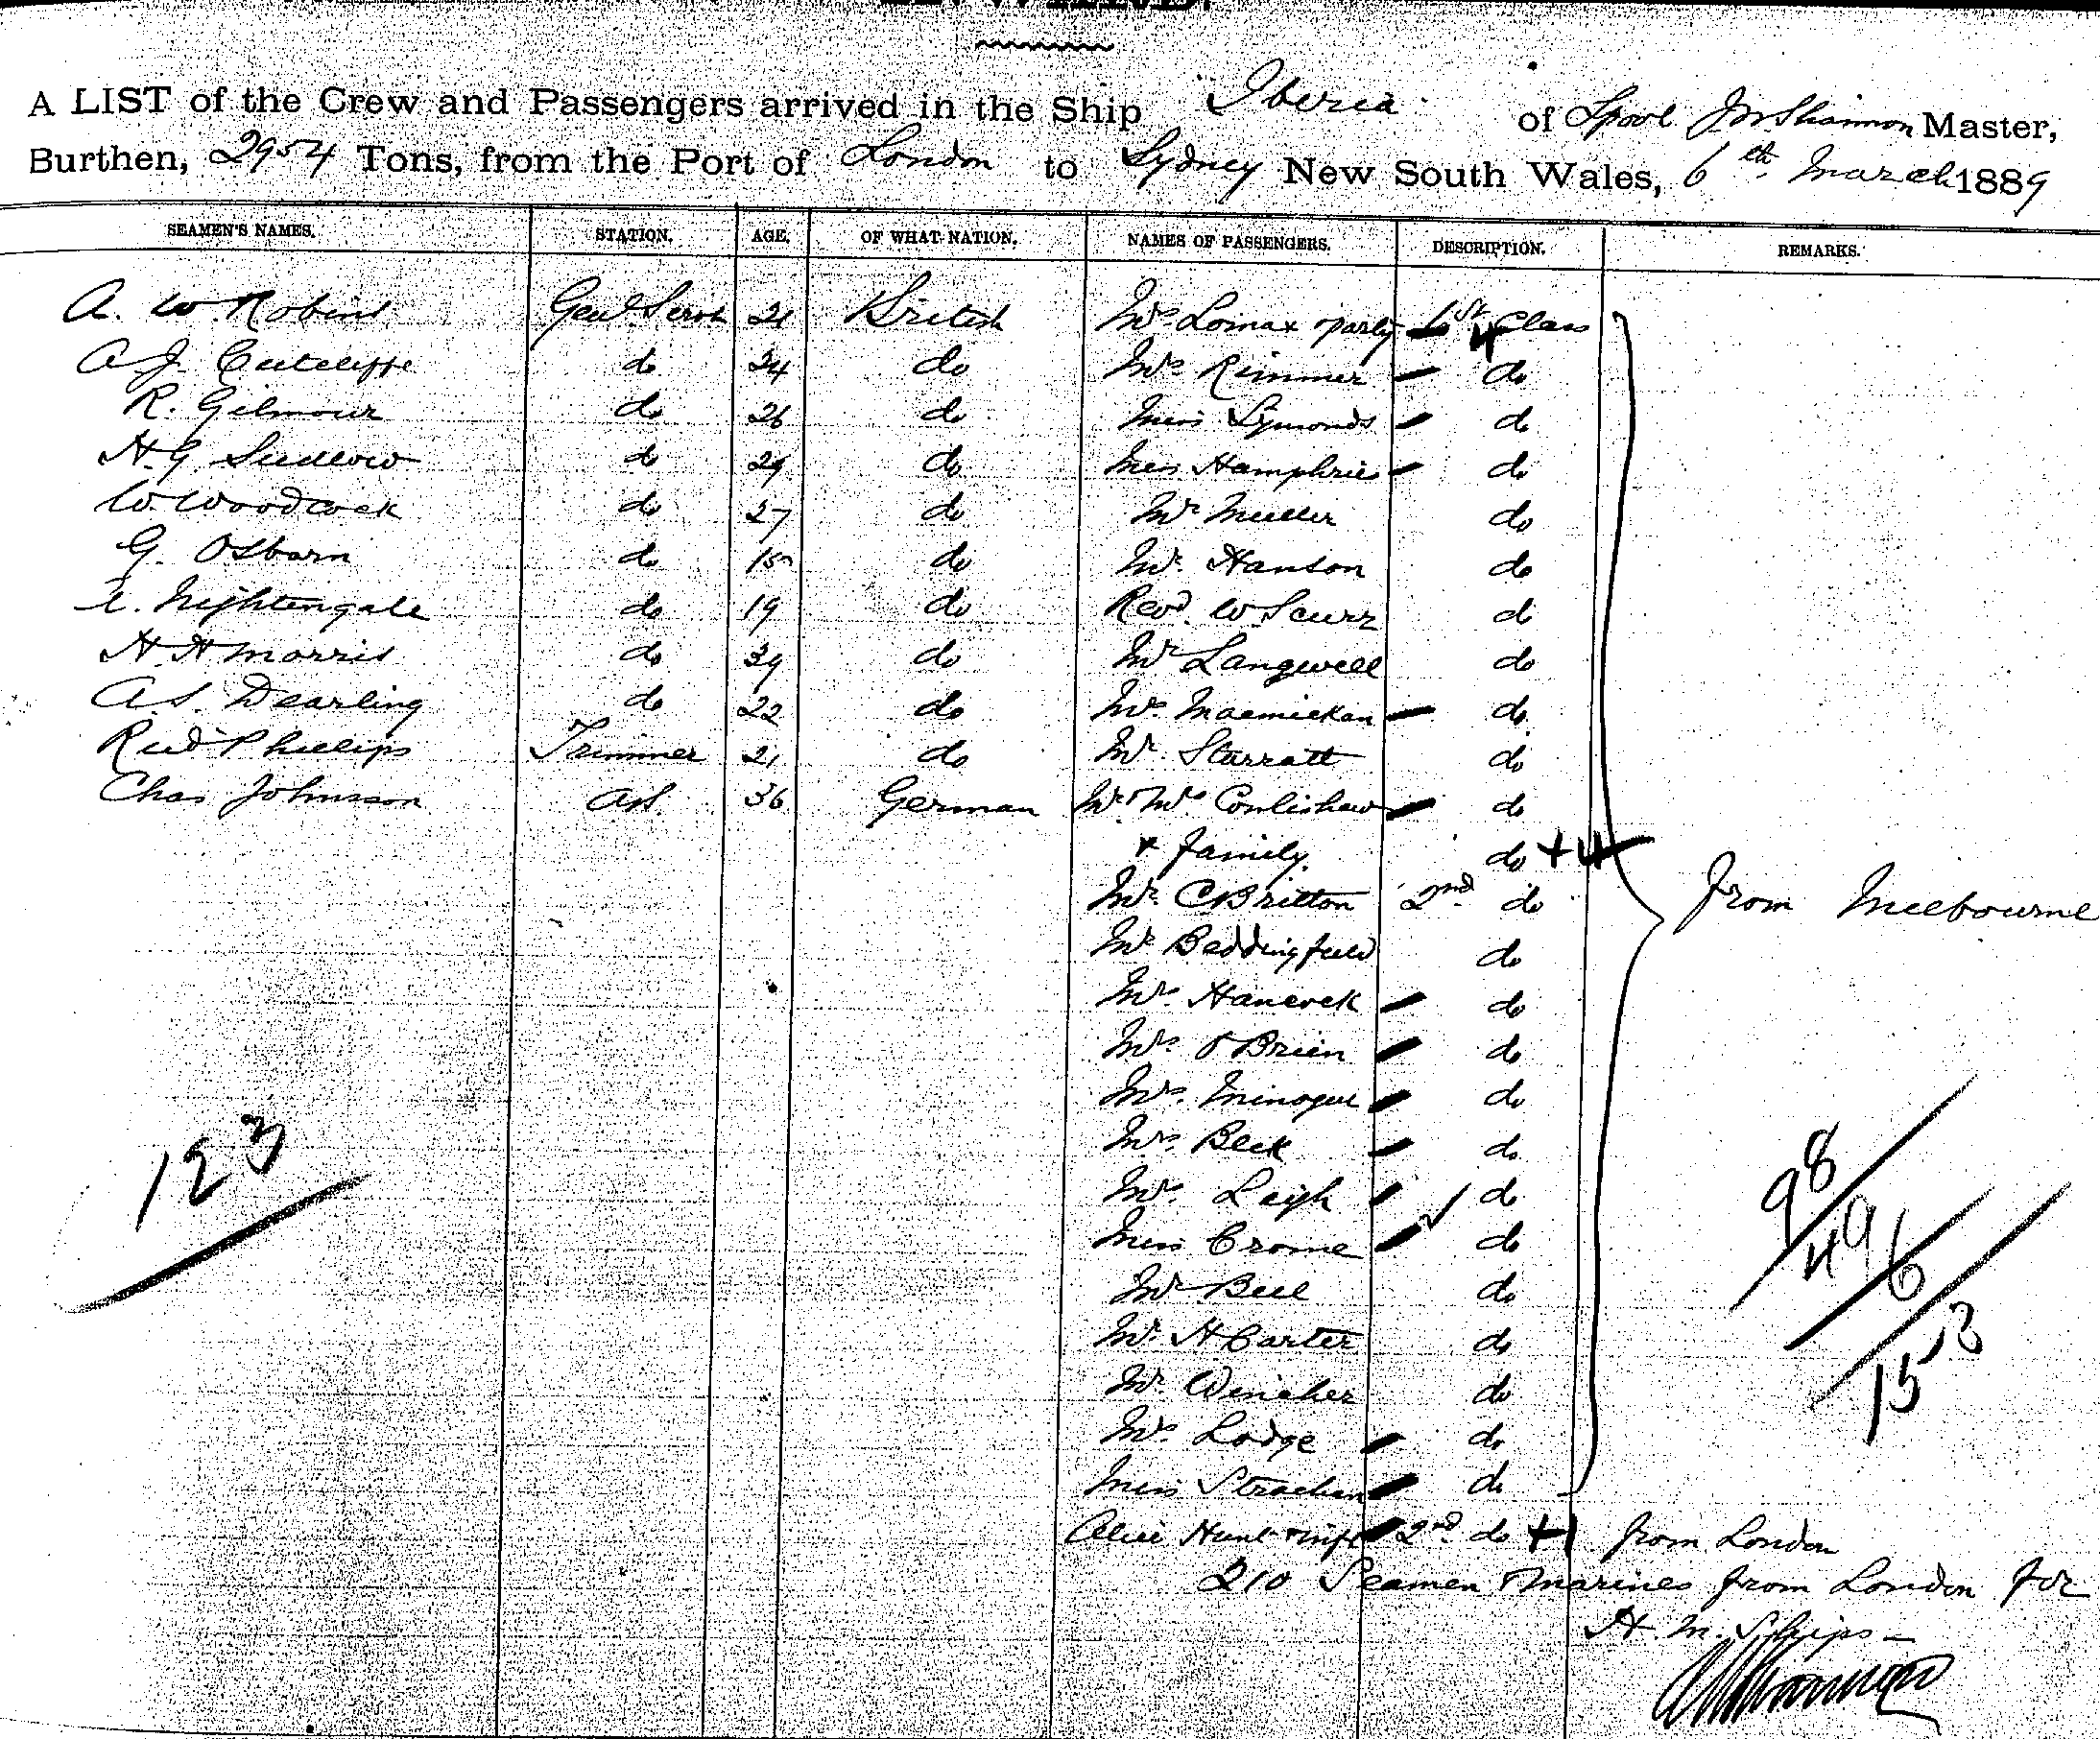 A LIST of the Crew and Passengers arrived in the Ship Iberia of Lpool J M Shannon Master,
Burthen, 2954 Tons, from the Port of London to Sydney New South Wales, 6th March 1889
SEAMEN'S NAMES. STATION. AGE. OF WHAT NATION. NAMES OF PASSENGERS. DESCRIPTION. REMARKS.
A. W. Robins Genl Servt 21 British Mrs Lomax & party 1st Class
4
A J Cutcliffe do 24 do Mrs Rimmer do
R. Gilmour do 26 do Miss Symonds do
H. G. Sudlow do 29 do Miss Hamphries do
W. Woodcock do 27 do Mr Muller do
G. Osbarn do 18 do Mr. Hanson do
Nightengale do 19 do Revd. W Scurr do
H H Morris do 39 do Mr Langwell do
A. S. Dearling do 22 do Mrs. Macmickan do
Rich Phillips Trimmer 21 do Mr. Starratt do
Chas Johnsson AB 36 German Mr & Mrs Conlishaw do
& family. do + 4
Mr C Britton 2nd do From Melbourne
Mr Beddingfield do
Mrs. Hancock do
Mrs. O Brien do
Mrs. Minogue do
Mrs. Beck do
123 Mrs. Leigh do 98
Miss Crome do 496
Mr Bell do
Mr. H Carter do 153
Mr. Wincher do
Mrs Lodge do
Miss Strachan do
Alice Hunt & inft 2nd do +1 from London
210 Seamen & Marines from London for
H. M. Ships -